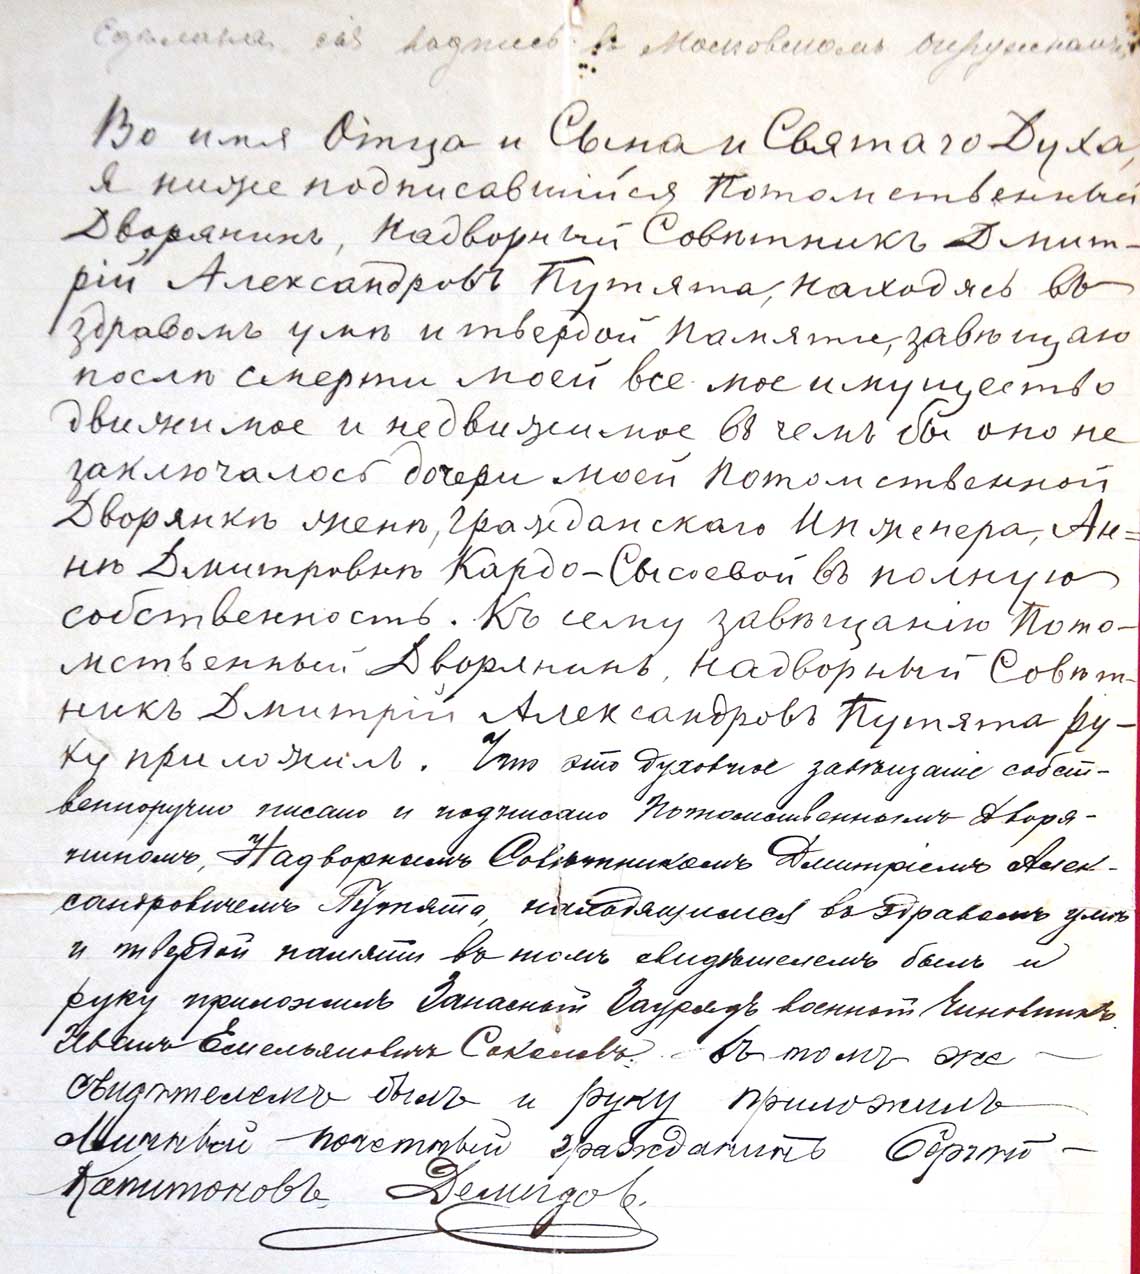 Сделана сія надпись въ Московскомъ Окружномъ
Во имя Отца и Сына и Святаго Духа,
я нижеподписавшійся Потомственный
Дворянинъ, Надворный Совѣтникъ Дмит-
рій Александровъ Путята, находясь въ
здравомъ умѣ и твердой памяти, завѣщаю
послѣ смерти моей все мое имущество
движимое и недвижимое въ чемъ бы оно не
заключалось дочери моей Потомственной
Дворянкѣ женѣ, Гражданскаго Инженера, Ан=
нѣ Дмитровнѣ Кардо-Сысоевой въ полную
собственность. Къ сему завѣщанію Пото-
мственный Дворянинъ, Надворный Совѣт-
никъ Дмитрій Александровъ Путята ру-
ку приложилъ. Что это духовное завѣщаніе собст-
венноручно писано и подписано Потомственнымъ Дворя-
ниномъ, Надворнымъ Совѣтникомъ Дмитріемъ Алек-
сандровичемъ Путята, находящимся въ здравомъ умѣ
и твердой памяти въ томъ свидѣтелемъ былъ и
руку приложилъ Запасный Заурядъ военный Чиновникъ
Иванъ Емельяновичъ Соколовъ. Въ томъ же –
свидѣтелемъ былъ и руку приложилъ
Личный почетный гражданинъ Сергѣй –
Капитоновъ Демидов.